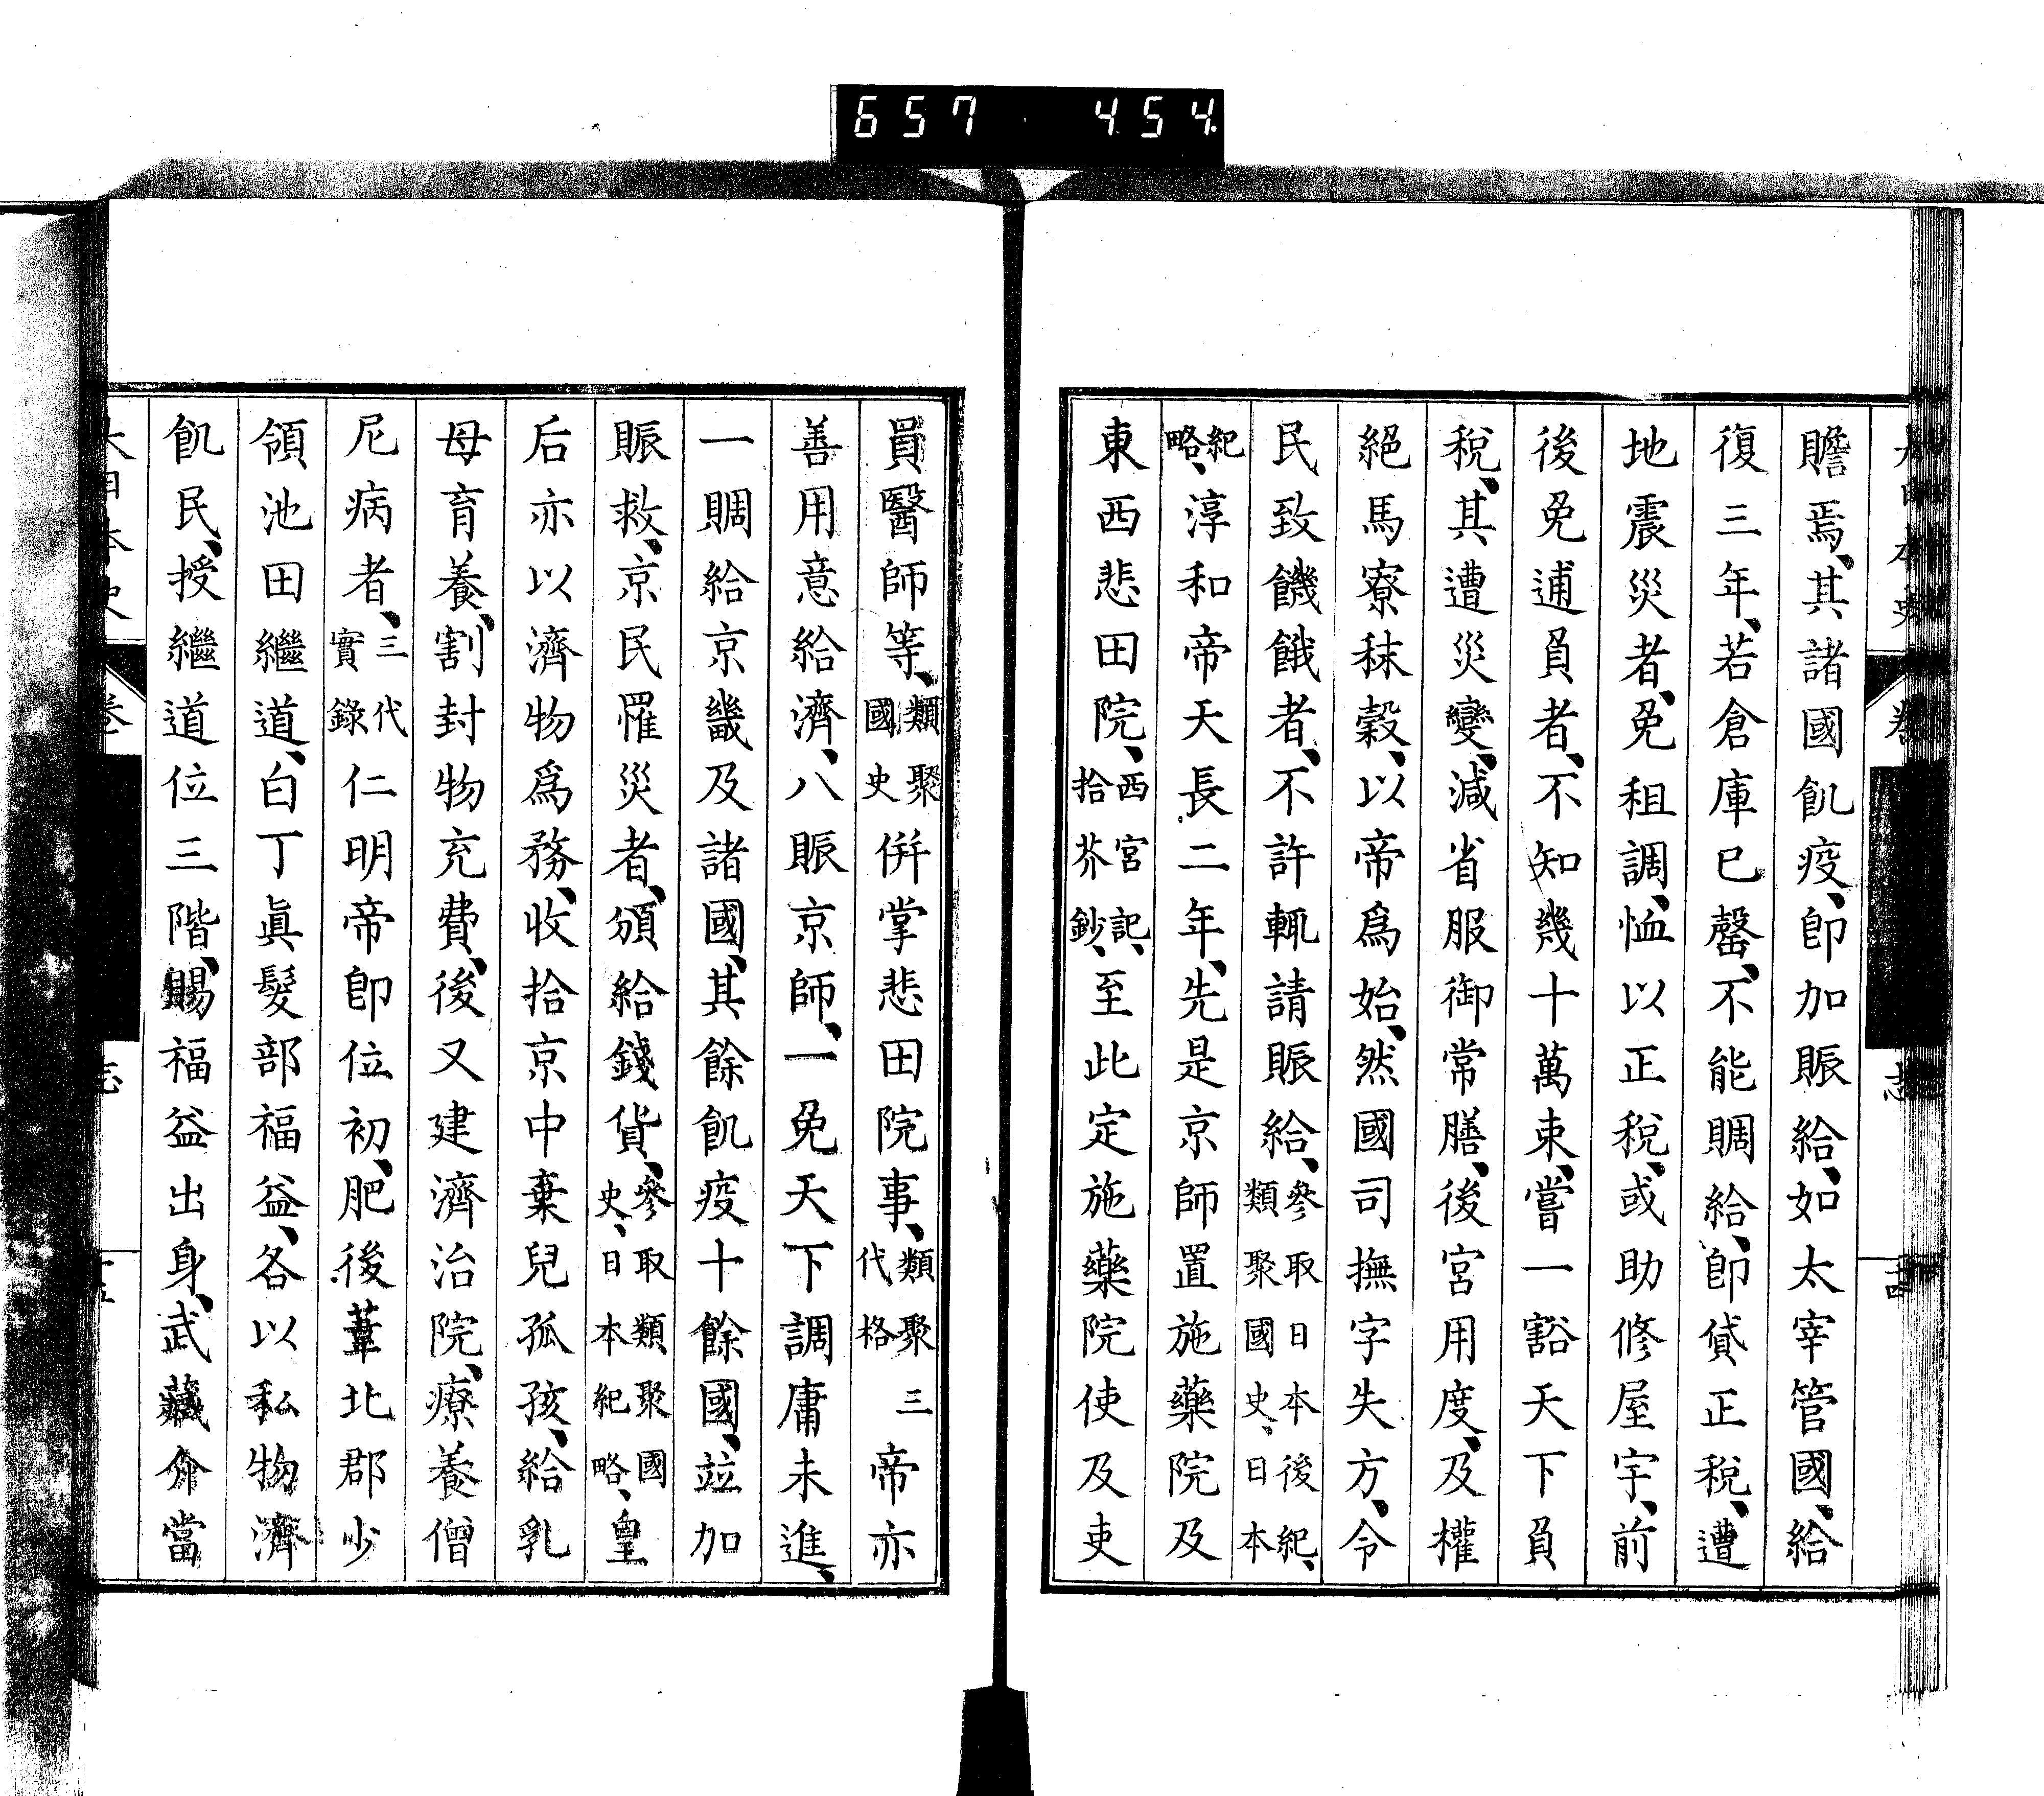 657 454
贍焉、其諸國飢疫、卽加賑給、如太宰管國、給
復三年、若倉庫已罄、不能賙給、卽貸正税、遭
地震災者、免租調、恤以正税、或助修屋宇、前
後免逋負者、不知幾十萬束、嘗一豁天下負
税、其遭災變、減省服御常膳、後宮用度、及權
絕馬寮秣穀、以帝爲始、然國司撫字失方、令
民致饑餓者、不許輒請賑給、參取日本後紀、類聚國史、日本
紀略、淳和帝天長二年、先是京師置施藥院及
東西悲田院、西宮記、拾芥鈔、至此定施藥院使及吏
員醫師等、類聚國史併掌悲田院事、類聚三代格帝亦
善用意給濟、八賑京師、一免天下調庸未進、
一賙給京畿及諸國、其餘飢疫十餘國、竝加
賑救、京民罹災者、頒給錢貨、參取類聚國史、日本紀略、皇
后亦以濟物爲務、收拾京中棄兒孤孩、給乳
母育養、割封物充費、後又建濟治院、療養僧
尼病者、三代實錄仁明帝卽位初、肥後葦北郡少
領池田繼道、白丁眞髮部福益、各以私物濟
飢民、授繼道位三階、賜福益出身、武藏介當
大日本史 卷 志